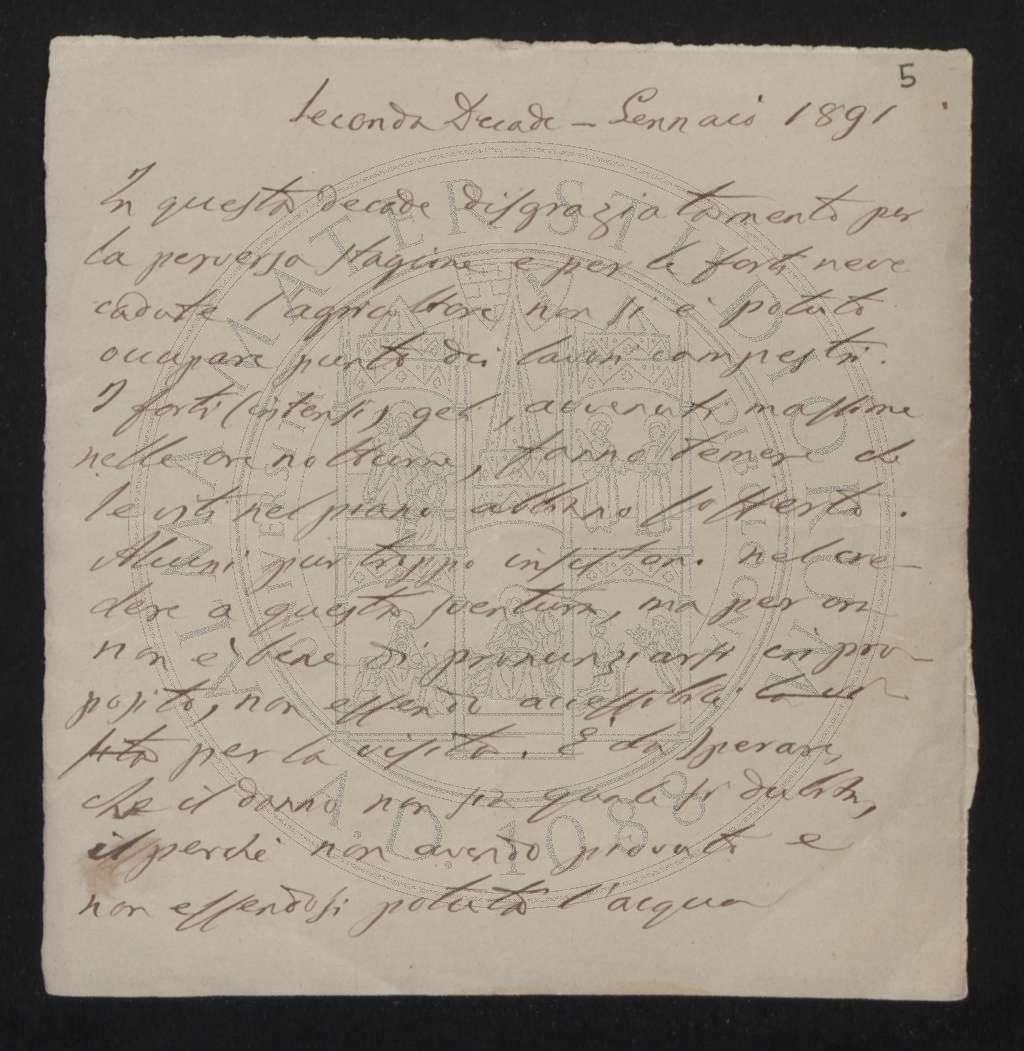 5
Seconda Decade - Gennaio 1891
In questa decade disgraziatamente per
la perversa stagione e per le forti neve
cadute l'agricoltore non si è potuto
occupare punto dei lavori campestri.
I forti (intensi) geli, avvenuti massime
nelle ore notturne, fanno temere che
le viti nel piano abbiano sofferto.
Alcuni pur troppo insistono nel cre-
dere a questa sventura, ma per ora
non è bene di pronunziarsi in pro-
posito, non essendo accessibili la vi-
sita per la visita. È da sperare,
che il danno non sia quale si dubita,
il perchè non avendo piovuto e
non essendosi potuta l'acqua
ALMA MATER STUDIORUM
A.D. 1088